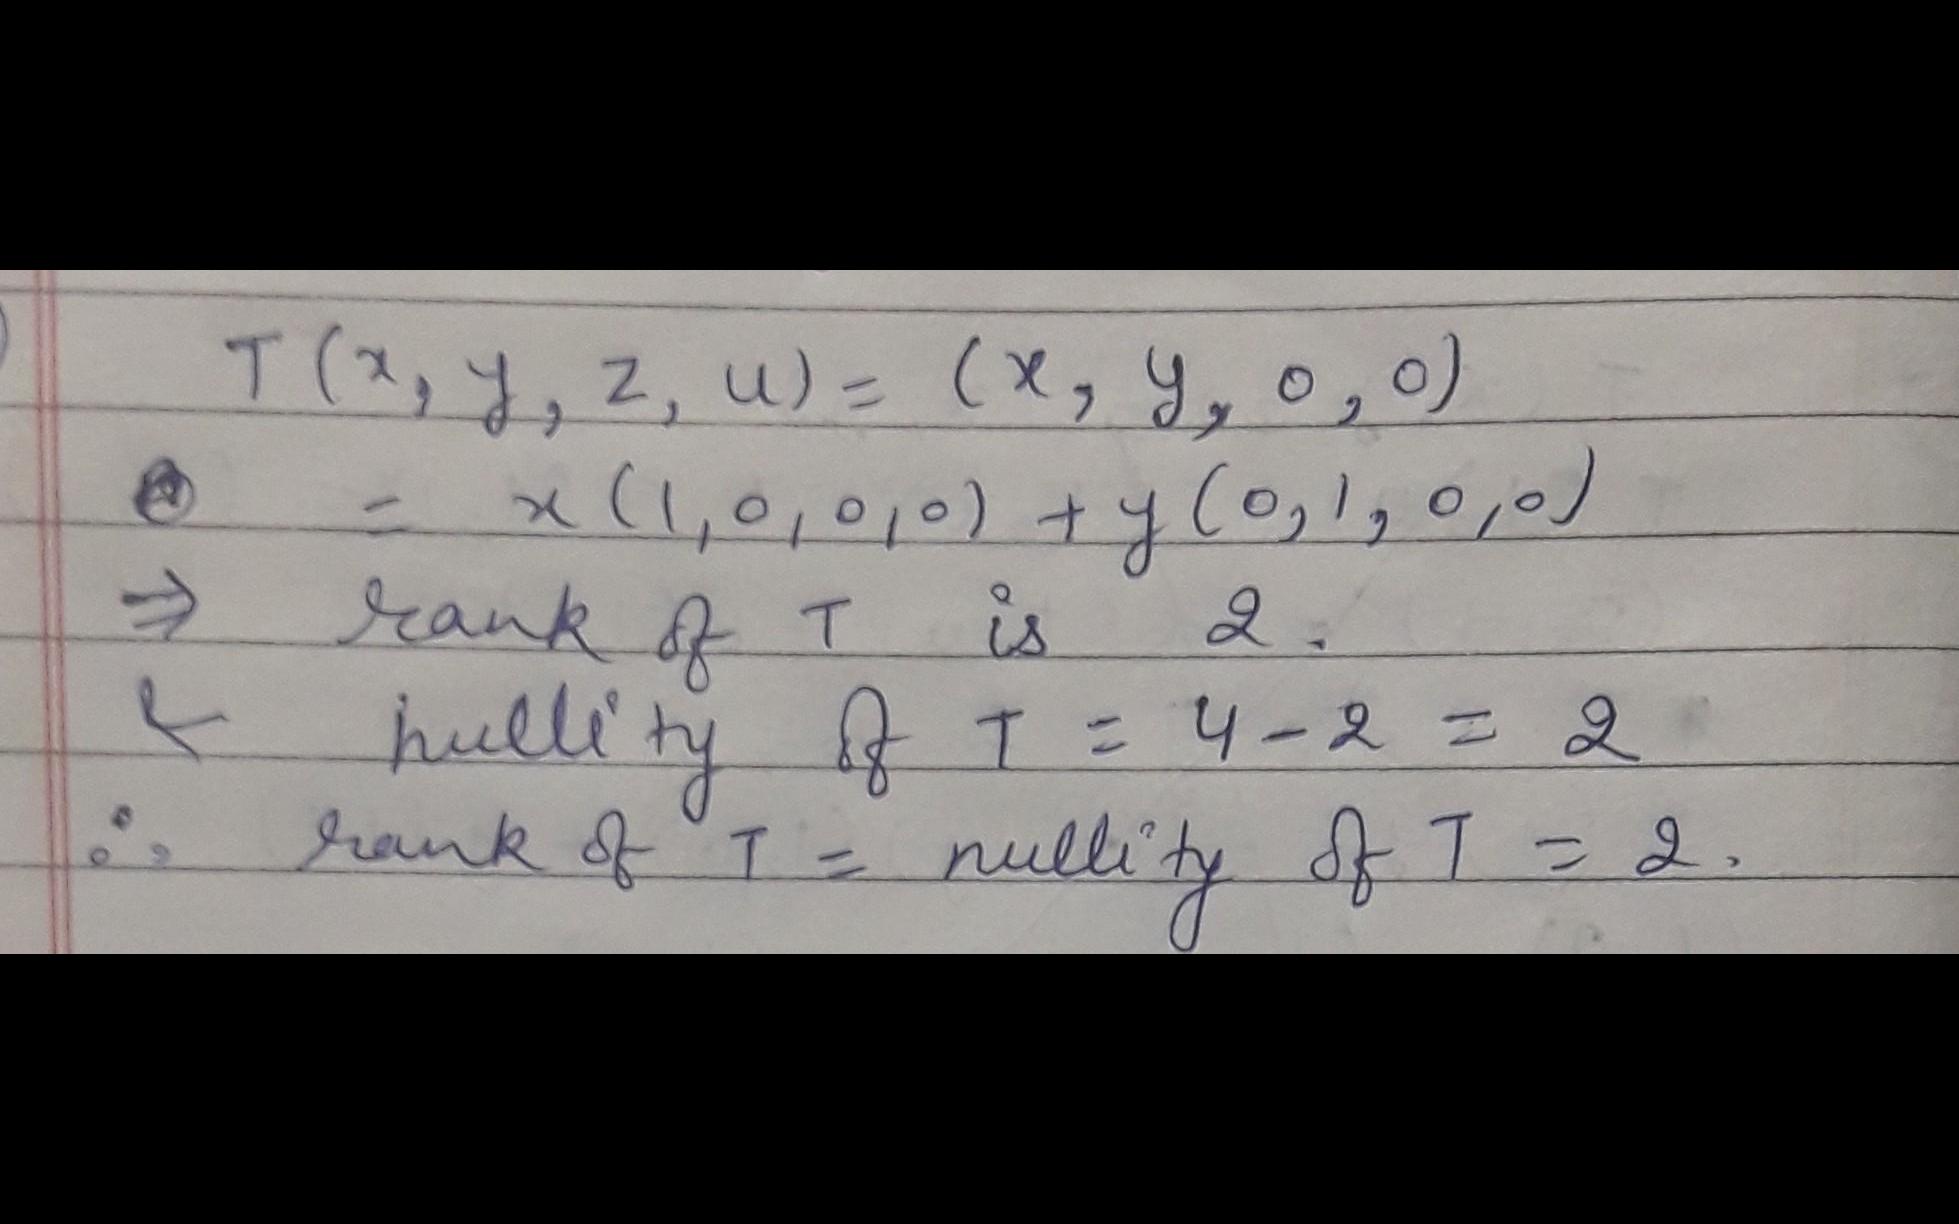 T(x, y, z, u) = (x, y, 0, 0)
= x(1,0,0,0) + y(0,1,0,0)
⇒ rank of T is 2.
& nullity of T = 4-2 = 2
∴ rank of T = nullity of T = 2.